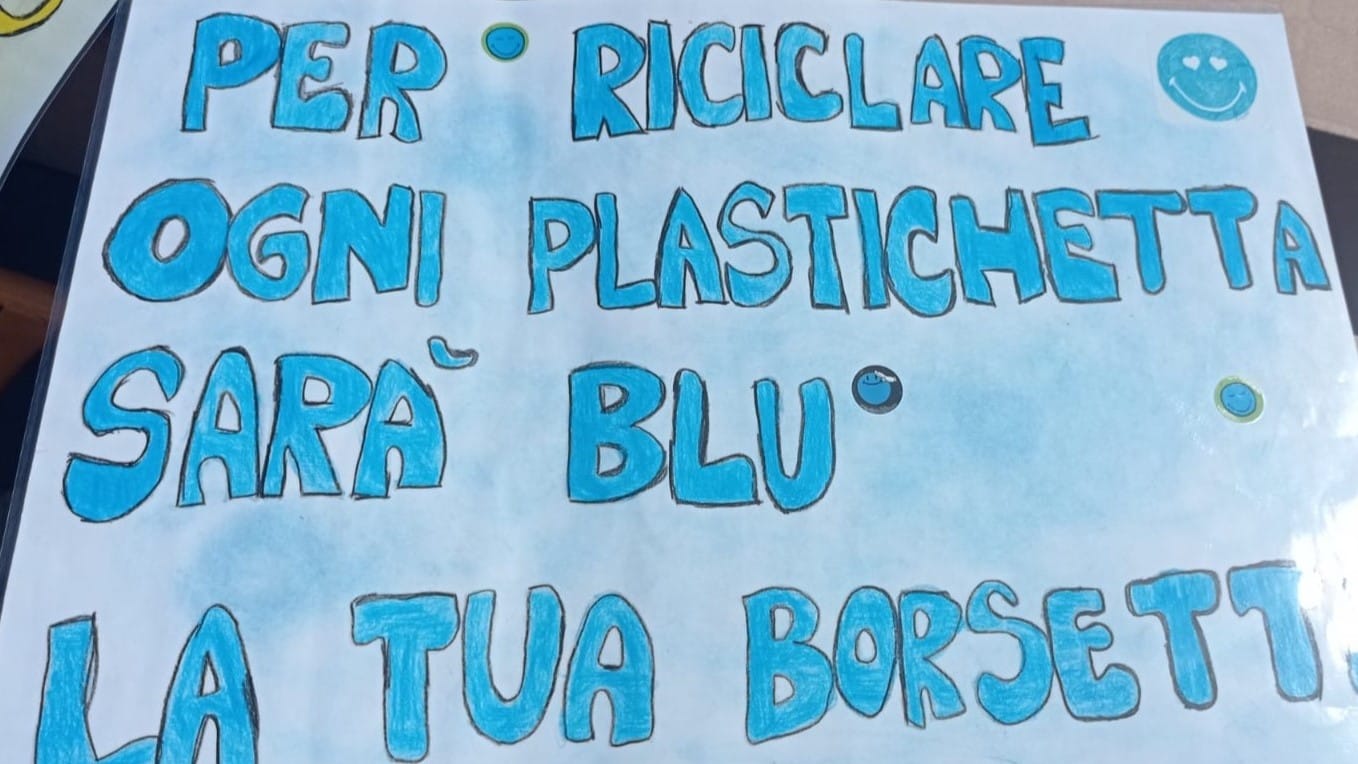 PER RICICLARE
OGNI PLASTICHETTA
SARÀ BLU
LA TUA BORSETT